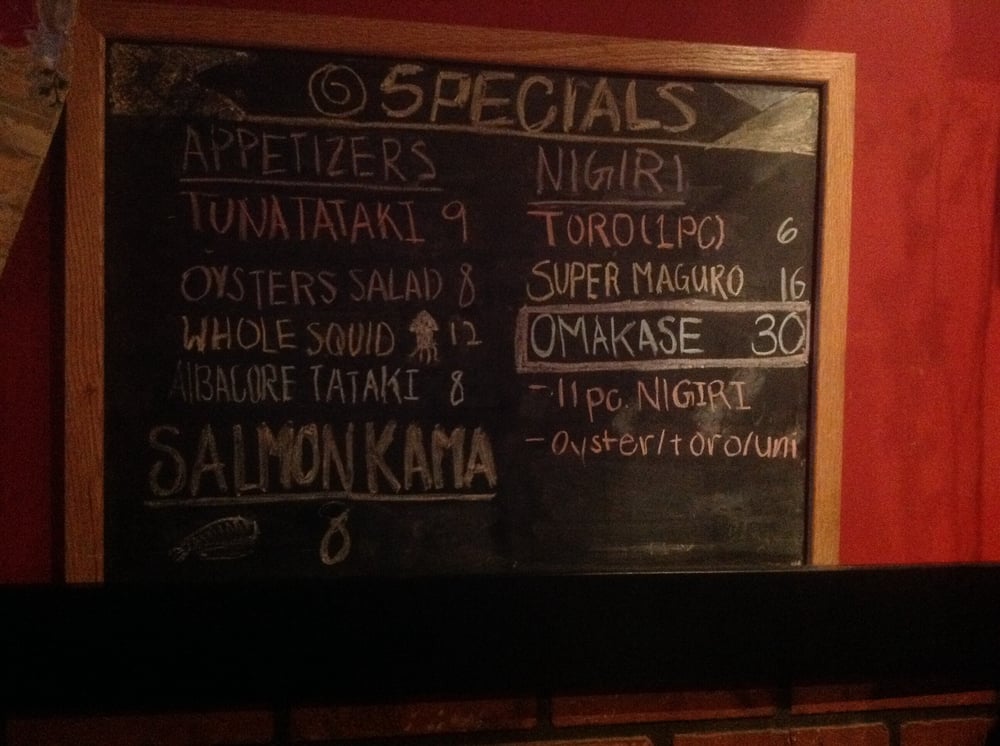 SPECIALS
APPETIZERS
TUNA TATAKI 9
OYSTERS SALAD 8
WHOLE SQUID 12
AlBACORE TATAKI 8
SALMON KAMA
8
NIGIRI
TORO (1PC) 6
SUPER MAGURO 16
OMAKASE 30
-11pc. NIGIRI
-oyster/toro/uni